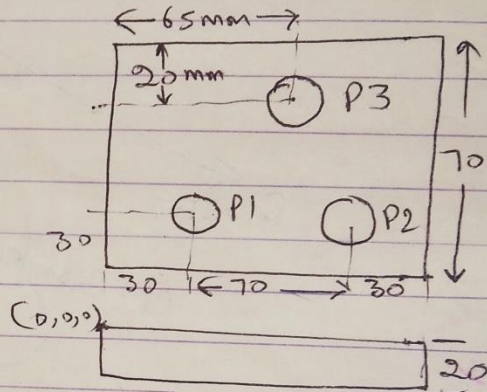 65mm
20mm
P3
70
P1
P2
30
30
70
30
(0,0,0)
20